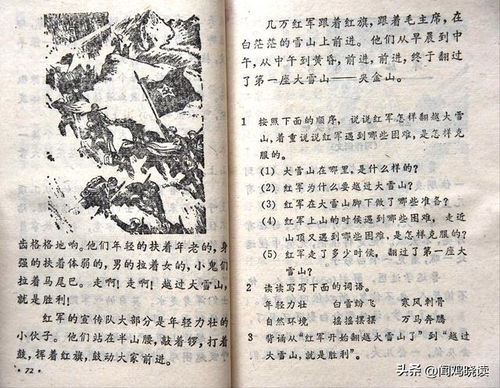 齿格格地响。他们年轻的扶着年老的，身
强的扶着体弱的，男的拉着女的，小鬼们
拉着马尾巴。走啊！走啊！越过大雪山，
就是胜利！
红军的宣传队大部分是年轻力壮的
小伙子。他们站在半山腰，敲着锣，打着
鼓，挥着红旗，鼓动大家前进。
· 72 ·
几万红军跟着红旗，跟着毛主席，在
白茫茫的雪山上前进。他们从早晨到中
午，从中午到黄昏，前进，前进，终于翻过
了第一座大雪山——夹金山。
1 按照下面的顺序，说说红军怎样翻越大雪
山，着重说说红军遇到哪些困难，是怎样克
服的。
(1) 大雪山在哪里，是什么样的？
(2) 红军为什么要越过大雪山？
(3) 红军在大雪山脚下做了哪些准备？
(4) 红军上山的时候遇到哪些困难，走近
山顶又遇到哪些困难，是怎样克服的？
(5) 红军走了多少时候，翻过了第一座大
雪山？
2 读读写写下面的词语。
年轻力壮 白雪纷飞 寒风刺骨
自然环境 摇摇摆摆 万马奔腾
3 背诵从“红军开始翻越大雪山了”到“越过
大雪山，就是胜利”。
头条 @闻鸡晓读